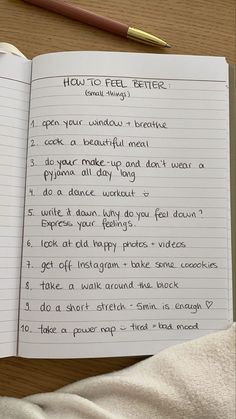 HOW TO FEEL BETTER:
(small things)
1. open your window + breathe
2. cook a beautiful meal
3. do your make-up and don't wear a
pyjama all day long
4. do a dance workout ☺
5. write it down. Why do you feel down?
Express your feelings.
6. look at old happy photos + videos
7. get off Instagram + bake some cooookies
8. take a walk around the block
9. do a short stretch - 5min is enough ♡
10. take a power nap ☺ tired = bad mood